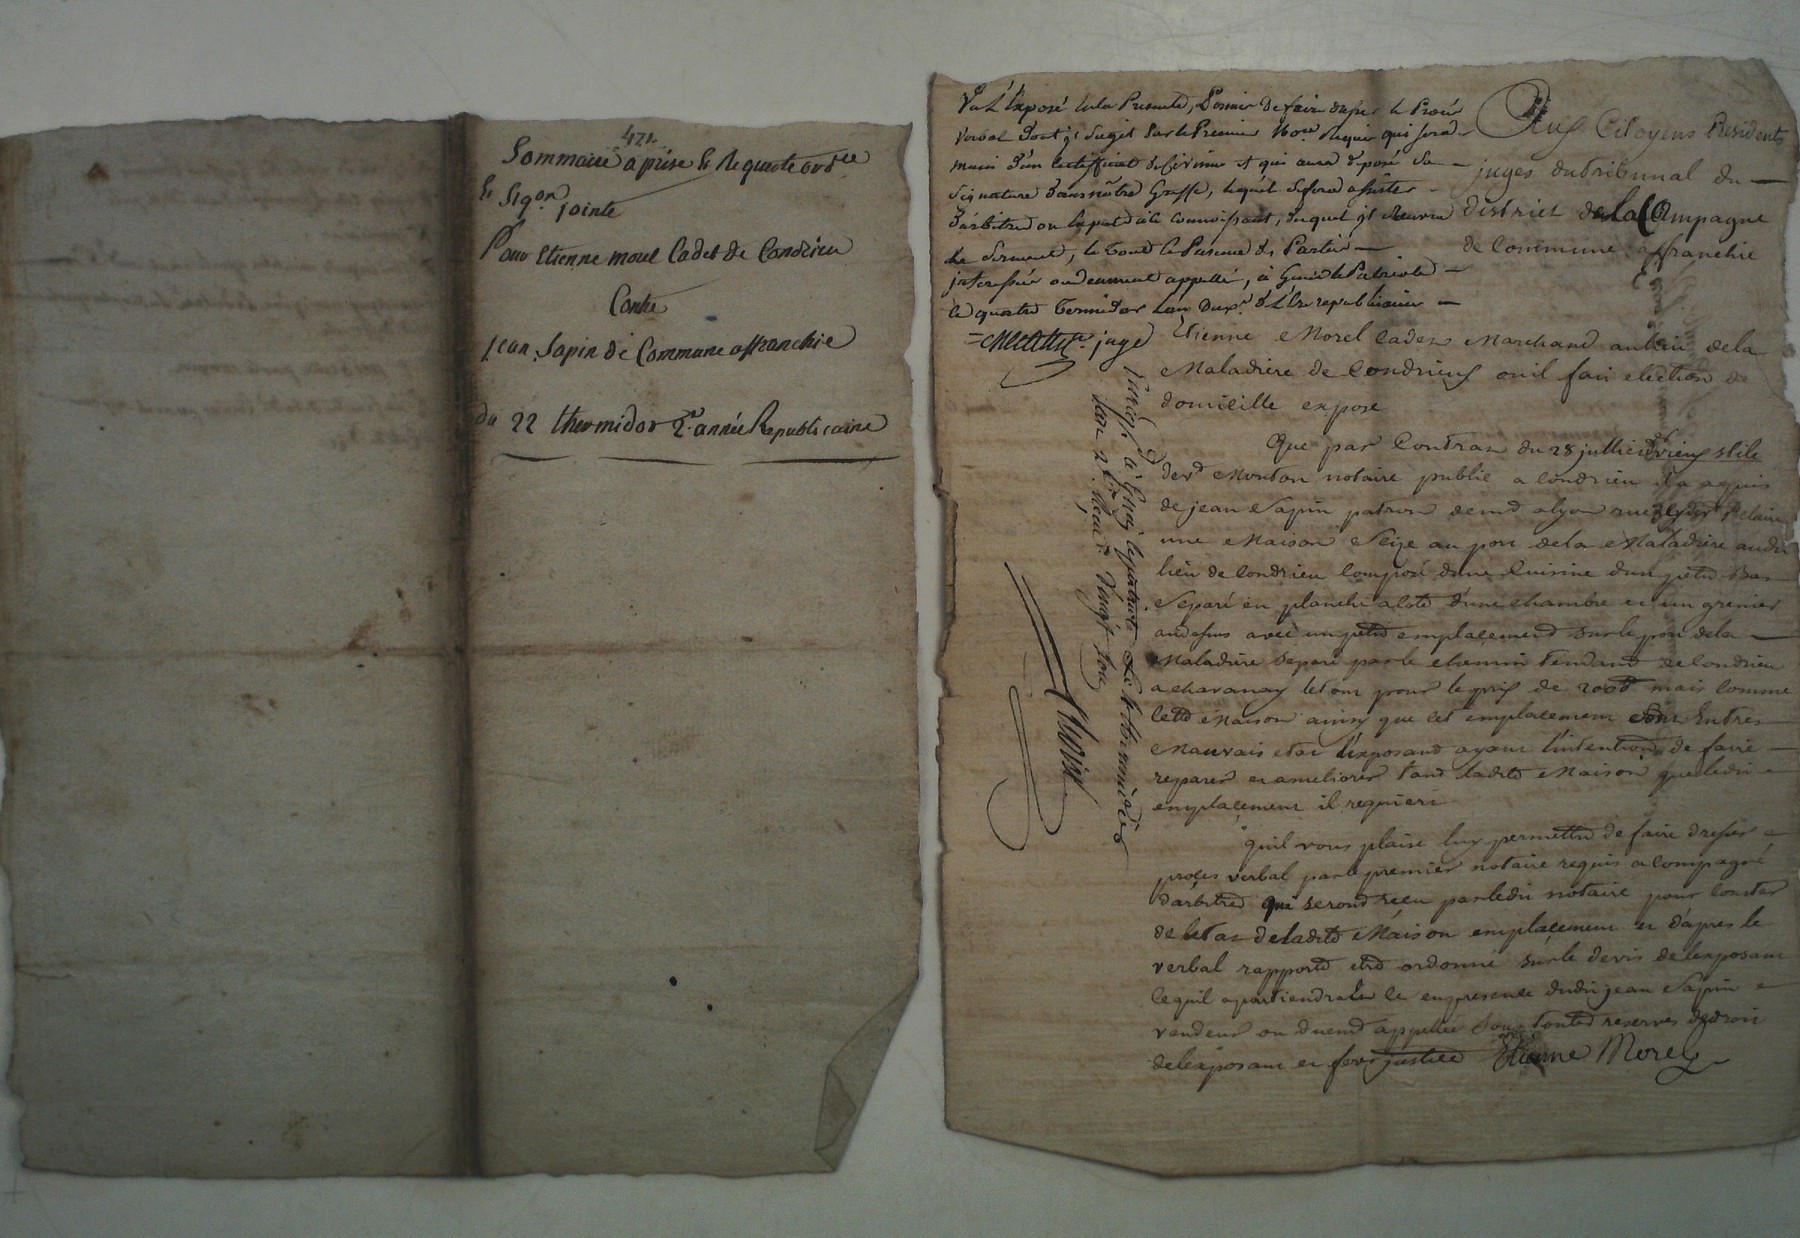 472
Sommaire aprise & Requete ord.ce
& Sig.on jointe
Pour Etienne morel Cadet de Condrieu
Contre
jean Sapin de Commune affranchie
du 22 thermidor 2.e année Republicaine
Vu L'Exposé en la Presente, Permis de faire dresser le Procés
verbal Dont il s'agit Par le Premier No.re Requis qui sera
muni d'un Certifficat de Civisme et qui aura deposé Sa
Signature dans nôtre Greffe, lequel se fera assister
D'arbitres ou experts à ce connoissant, duquel il recevra
Le Serment, le tout le Presence des Parties
interessées ou duement appellées, à
le quatre Termidor L'an Deux.e de L'Ere republicaine
juge
Aux Citoyens Presidents
juges du tribunal du
district de la Campagne
de Commune affranchie
Etienne Morel Cadet Marchand au lieu de la
Maladiere de Condrieux ou il fait election de
domicille expose
Que par Contrat du 28 juillet vieux stile
Mouton notaire public a Condrieu il a aquis
de jean Sapin patron demt a lyon rue
une Maison Seize au port de la Maladiere audit
lieu de Condrieu Composé dune Cuisine dun petit Bas
Separé en planche a coté d'une chambre et un grenier
audessus avec un petit emplacement sur le port de la
Maladiere Separé par le chemin tendant de Condrieu
a chavanay le tout pour le prix de 2000 mais Comme
Maison ainsy que cet emplacement Sont En tres
Mauvais etat l'exposant ayant l'intention de faire
reparer et ameliorer tant ladite Maison que ledit
emplacement il requiert
qu'il vous plaise luy permettre de faire dresser
proces verbal par le premier notaire requis acompagné
d'arbitres qui seront reçu par ledit notaire pour Constater
de letat de ladite Maison emplacement et d'apres le
verbal rapporté etre ordonné sur le devis de lexposant
ce quil apartiendra en presence dudit jean Sapin
vendeur ou duemt appellée Sous toutes reserves de droit
de lexposant et ferez justice Etienne Morel